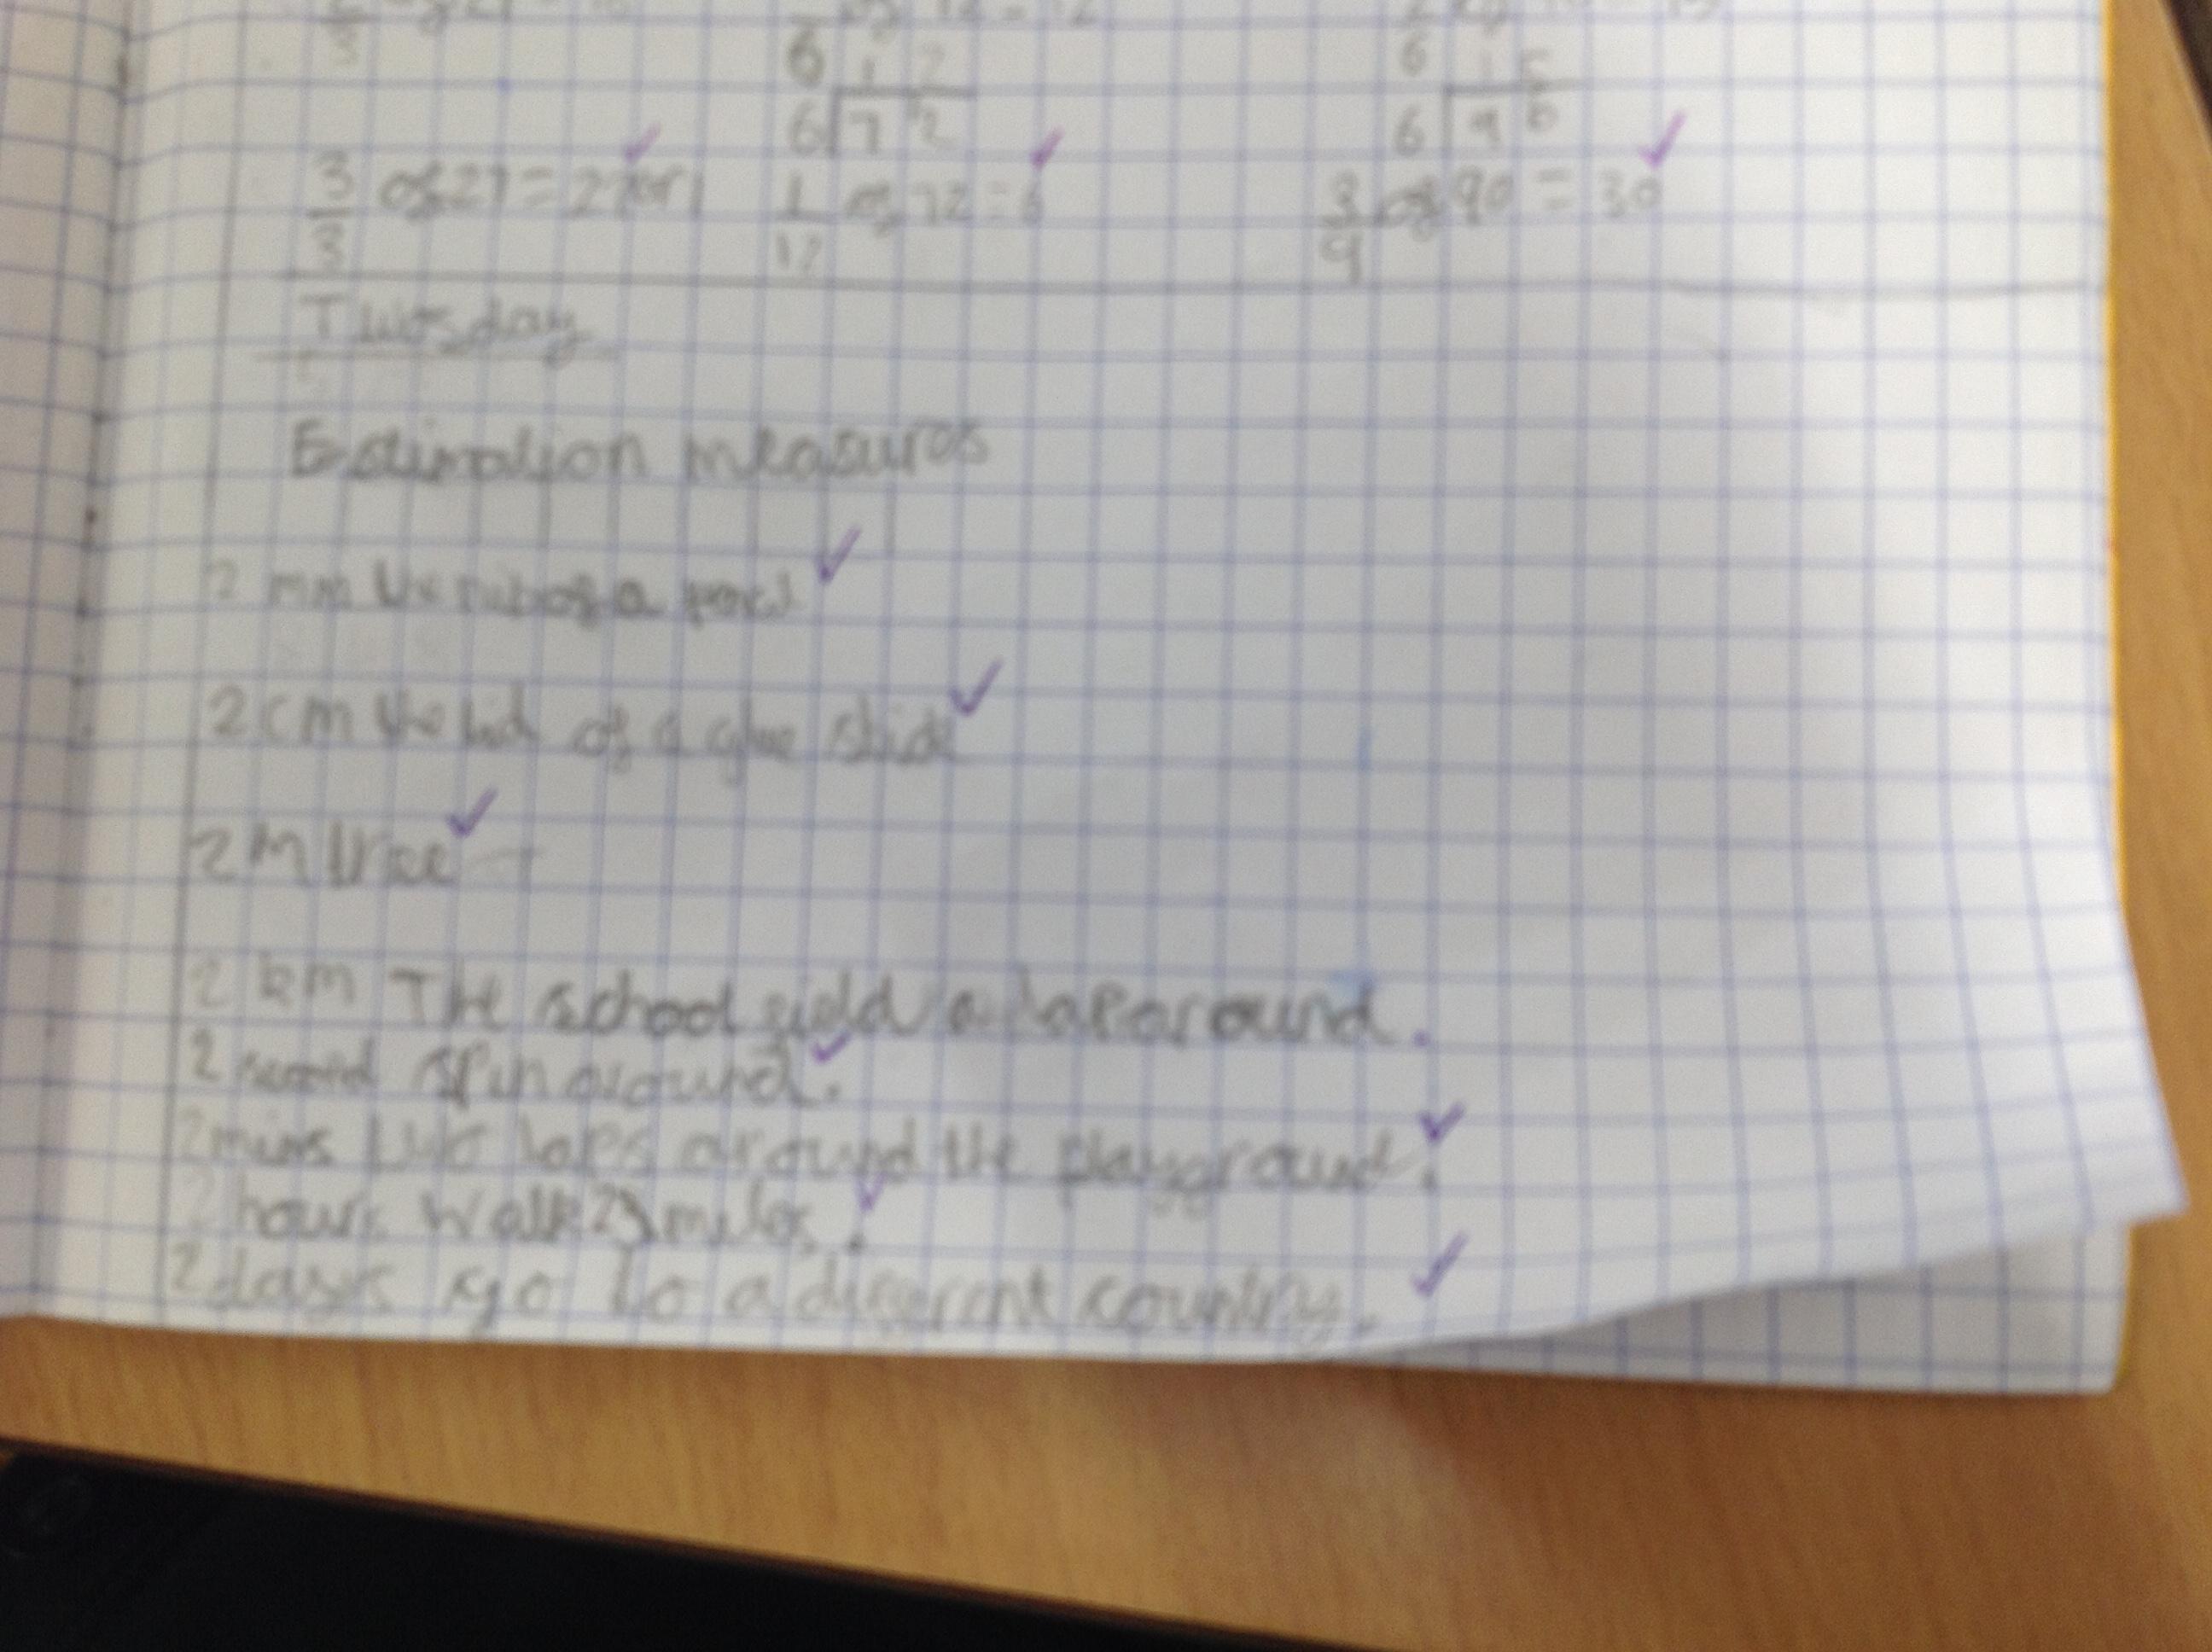 6 1 2 6 1 5
6 7 2 6 9 0
3/3 of 27 = 27 or 1 1/12 of 72 = 6 3/9 of 90 = 30
Tuesday
Estimation measures
2 mm the nib of a pencil
2 cm the lid of a glue stick
2 m tree
2 km The school field a lap around.
2 second spin around.
2 mins two laps around the playground.
2 hours walk 2 miles.
2 days go to a different country.